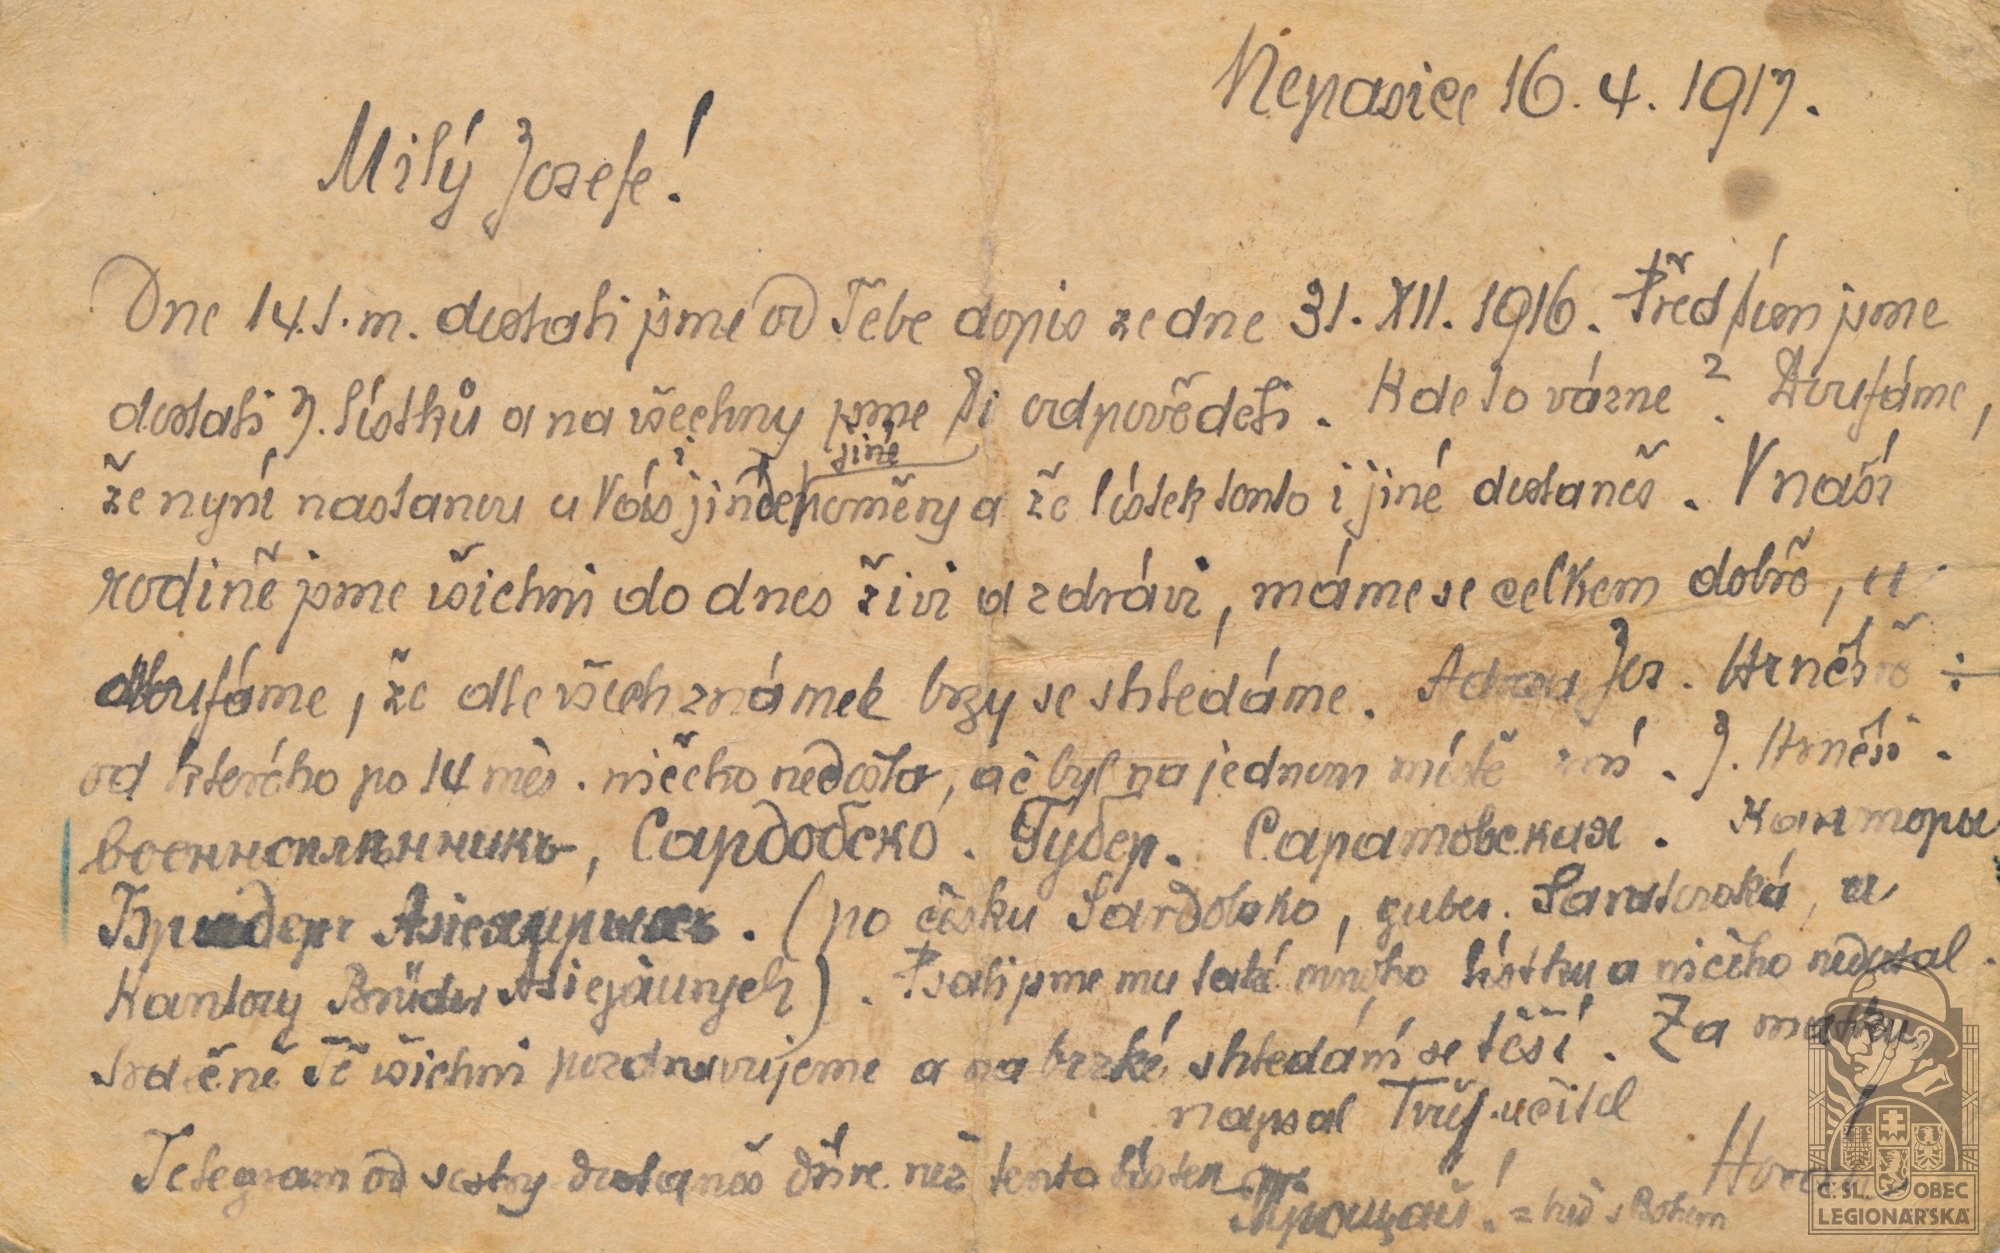 Nepasice 16. 4. 1917.
Milý Josefe!
Dne 14. t. m. dostali jsme od Tebe dopis ze dne 31. XII. 1916. Před tím jsme
dostali 7. lístků a na všechny jsme Ti odpověděli. Kde to vázne? Doufáme,
jiné
že nyní nastanou u Vás poměry a že lístek tento i jiné dostaneš. V naší
rodině jsme všichni do dnes živi a zdrávi, máme se celkem dobře, a
doufáme, že dle všech známek brzy se shledáme. Adresa Jos. Hrnčíř
od kterého po 14 měs. ničeho nedošlo, ač byl na jednom místě zní. J. Hrnčíř.
военнопленникъ, Сардобско. Губер. Саратовская. Канторы
(po česku Sardobsko, guber. Saratovská, u
Kantory Brüder). Psali jsme mu také mnoho lístku a ničeho nedostal.
Srdečně Tě všichni pozdravujeme a na brzké shledání se těší. Za matku
napsal Tvůj učitel
Telegram od sestry dostaneš dříve než tento lístek
Прощай! = buď s Bohem
Č. SL. OBEC
LEGIONÁŘSKÁ